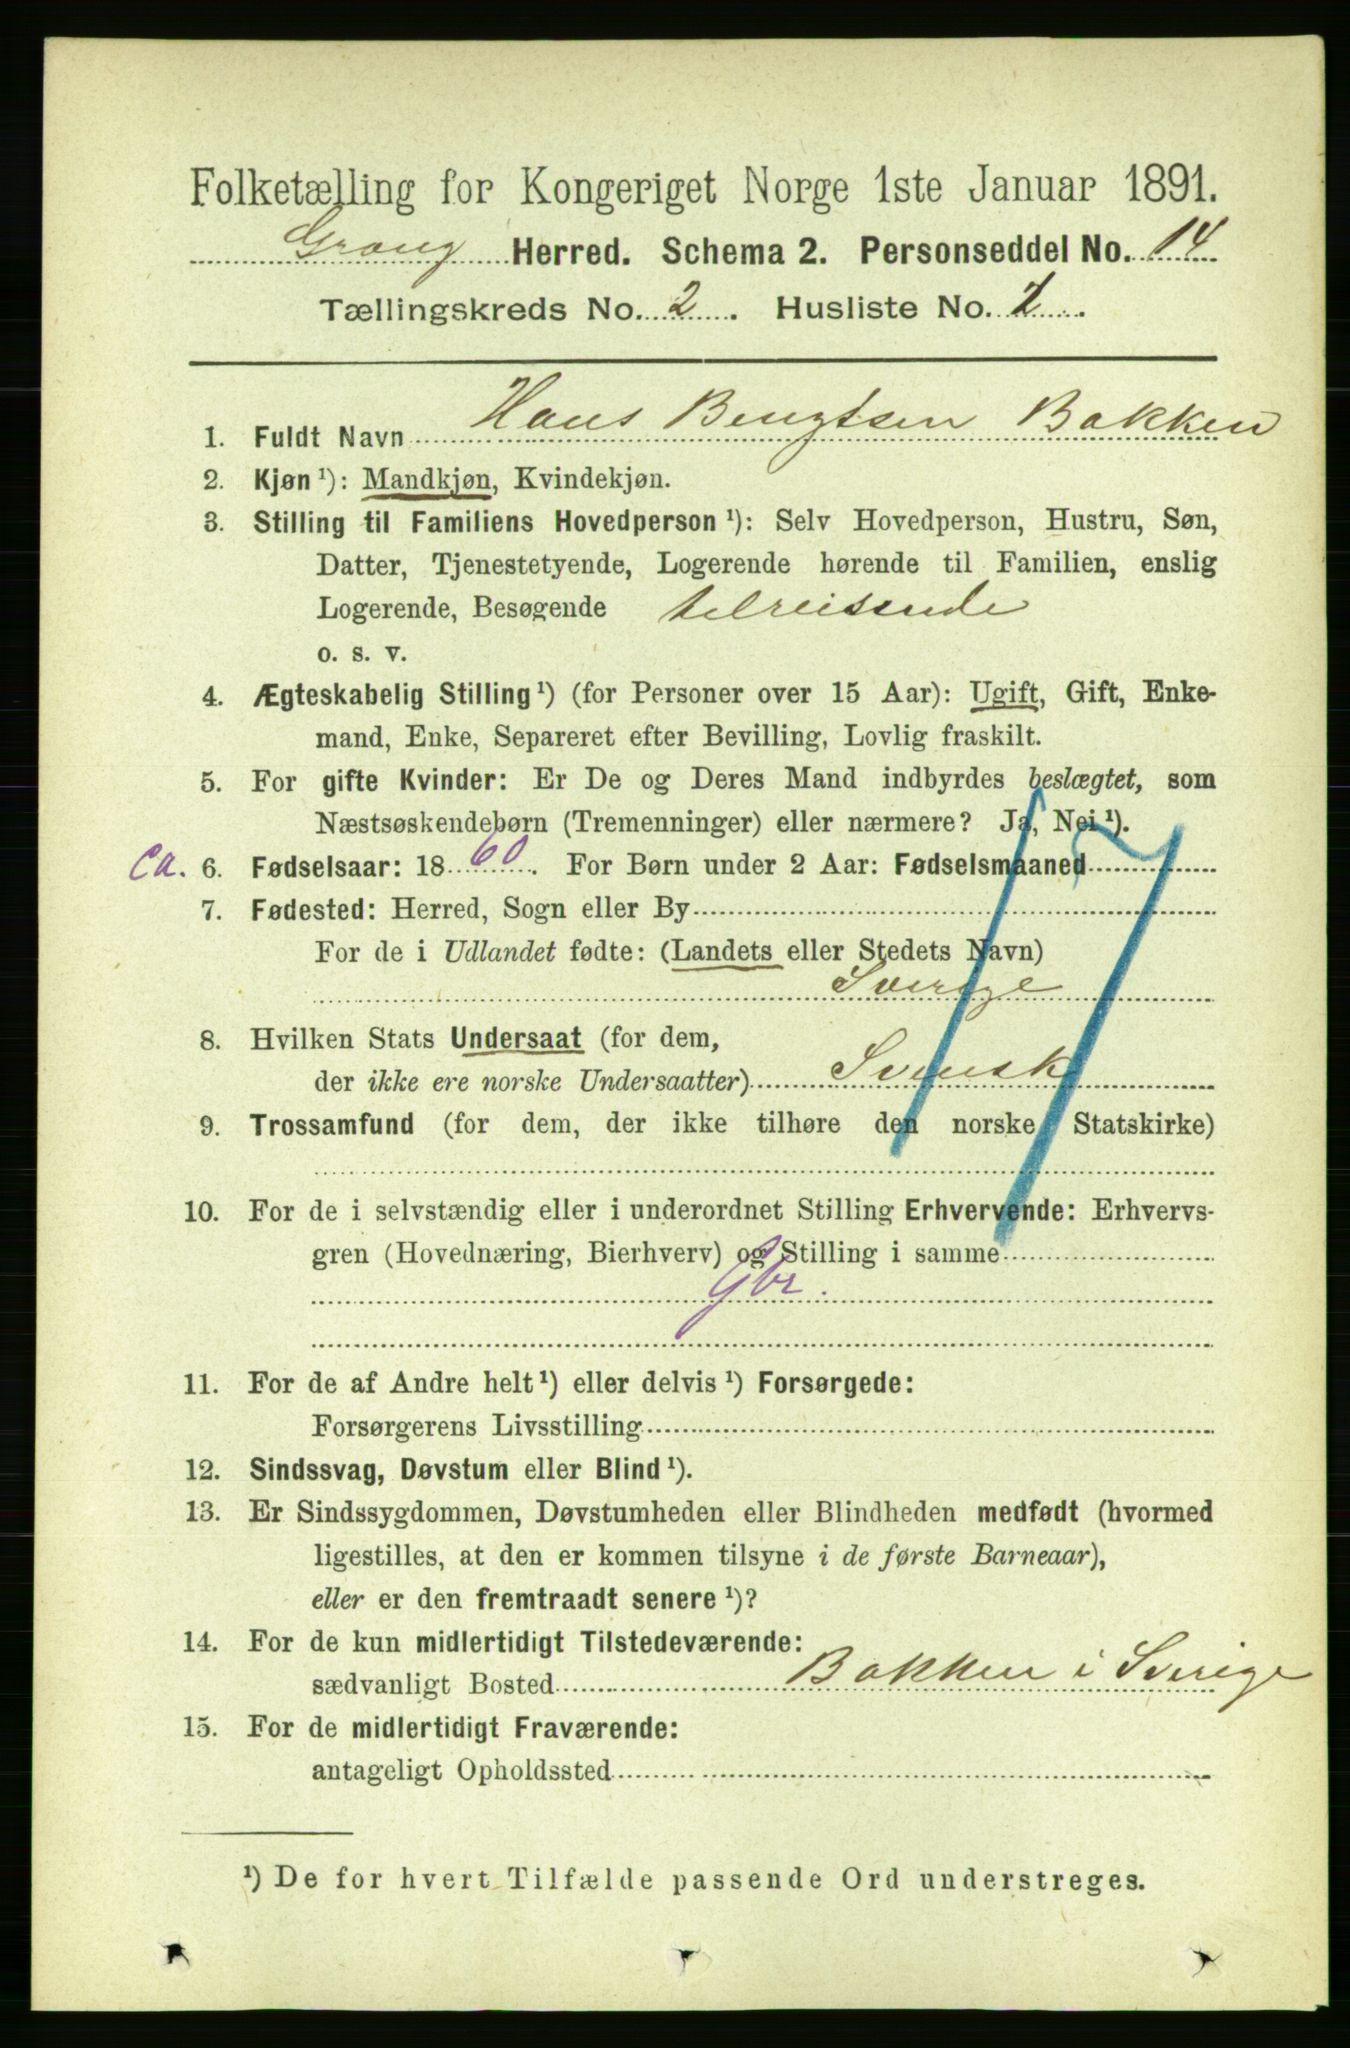 Folketælling for Kongeriget Norge 1ste Januar 1891.
Grong Herred. Schema 2. Personseddel No. 14
Tællingskreds No. 2. Husliste No. 7.
1. Fuldt Navn Hans Bengtsen Bakken
2. Kjøn ¹): Mandkjøn, Kvindekjøn.
3. Stilling til Familiens Hovedperson ¹): Selv Hovedperson, Hustru, Søn,
Datter, Tjenestetyende, Logerende hørende til Familien, enslig
Logerende, Besøgende tilreisende
o. s. v.
4. Ægteskabelig Stilling ¹) (for Personer over 15 Aar): Ugift, Gift, Enke-
mand, Enke, Separeret efter Bevilling, Lovlig fraskilt.
5. For gifte Kvinder: Er De og Deres Mand indbyrdes beslægtet, som
Næstsøskendebørn (Tremenninger) eller nærmere? Ja, Nei ¹).
ca. 6. Fødselsaar: 1860. For Børn under 2 Aar: Fødselsmaaned
7. Fødested: Herred, Sogn eller By
For de i Udlandet fødte: (Landets eller Stedets Navn)
Sverige
8. Hvilken Stats Undersaat (for dem,
der ikke ere norske Undersaatter) Svensk
9. Trossamfund (for dem, der ikke tilhøre den norske Statskirke)
17
10. For de i selvstændig eller i underordnet Stilling Erhvervende: Erhvervs-
gren (Hovednæring, Bierhverv) og Stilling i samme
Gbr.
11. For de af Andre helt ¹) eller delvis ¹) Forsørgede:
Forsørgerens Livsstilling
12. Sindssvag, Døvstum eller Blind ¹).
13. Er Sindssygdommen, Døvstumheden eller Blindheden medfødt (hvormed
ligestilles, at den er kommen tilsyne i de første Barneaar),
eller er den fremtraadt senere ¹)?
14. For de kun midlertidigt Tilstedeværende:
sædvanligt Bosted Bakken i Sverige
15. For de midlertidigt Fraværende:
antageligt Opholdssted
¹) De for hvert Tilfælde passende Ord understreges.